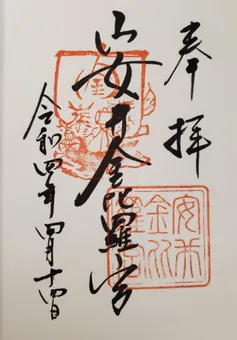 奉拝
安井金比羅宮
令和四年四月十四日
安井
金比
羅宮